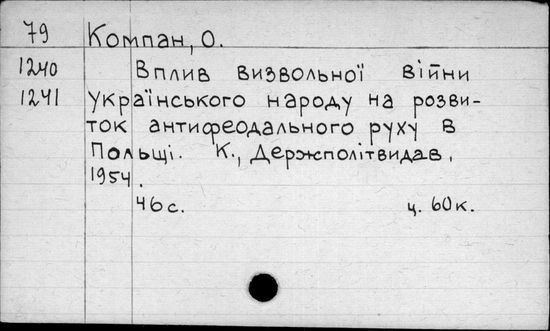 79 Компан, О.
1240 Вплив визвольної війни
1241 українського народу на розви-
ток антифеодального руху в
Польщі. К., Держполітвидав,
1954.
46 с. ц. 60 к.